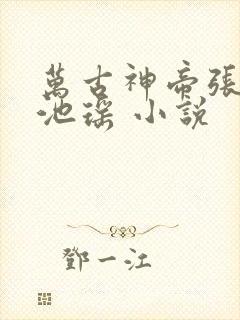 萬古神帝張
池瑤 小說
鄧一江